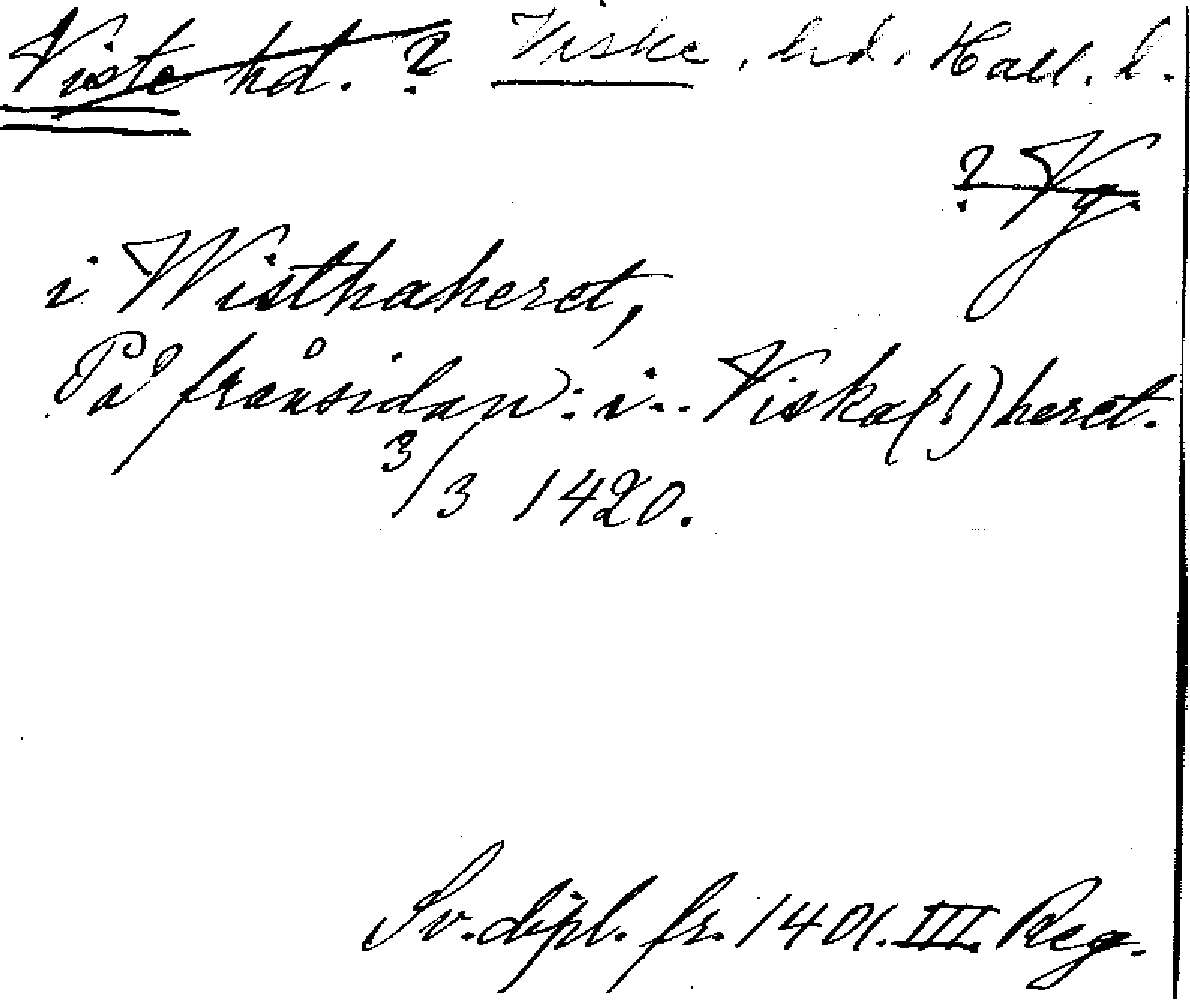 Viste hd. ? Viske, hd. Hall. l.
? Vg.
i Wisthaheret,
På frånsidan: i.. Viska(!)heret.
3/3 1420.
Sv. dipl. fr. 1401. III. Reg.